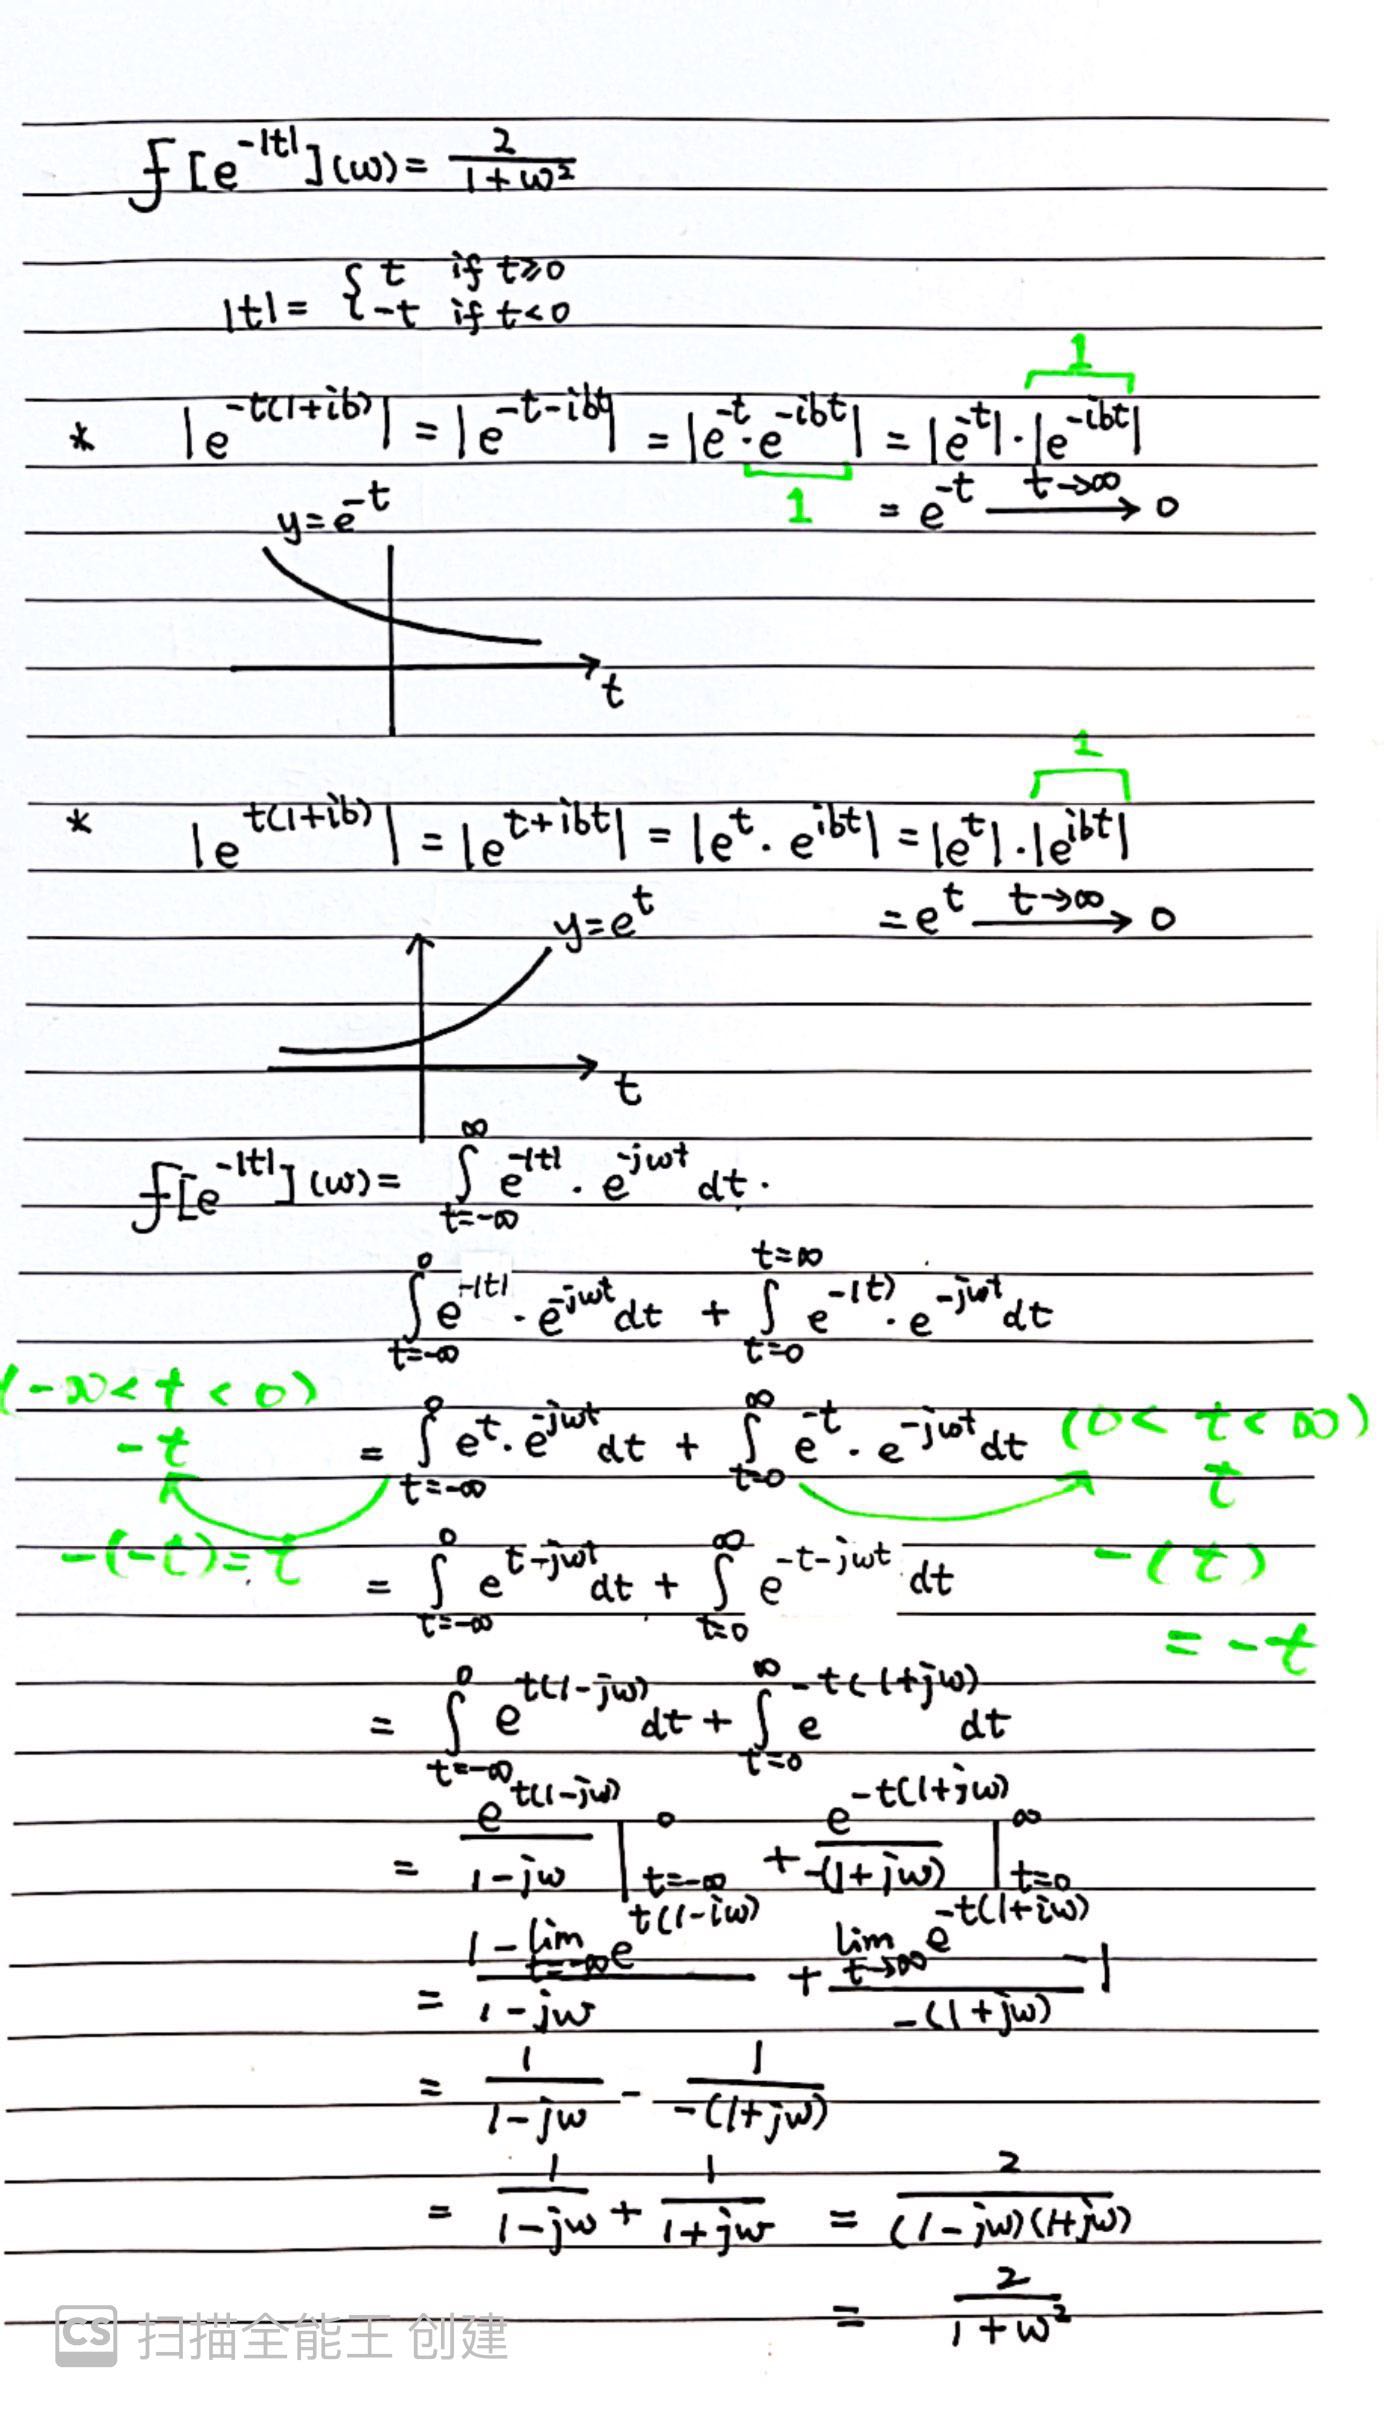 f[e^{-|t|}](ω) = \frac{2}{1+ω^2}
|t| = { t if t≥0
-t if t<0
1
* |e^{-t(1+ib)}| = |e^{-t-ibt}| = |e^{-t}·e^{-ibt}| = |e^{-t}|·|e^{-ibt}|
1 = e^{-t} \xrightarrow{t→∞} 0
y=e^{-t}
t
1
* |e^{t(1+ib)}| = |e^{t+ibt}| = |e^t · e^{ibt}| = |e^t|·|e^{ibt}|
= e^t \xrightarrow{t→∞} 0
y=e^t
t
f[e^{-|t|}](ω) = \int_{t=-∞}^{∞} e^{-|t|} · e^{-jωt} dt.
\int_{t=-∞}^{0} e^{-|t|} · e^{-jωt} dt + \int_{t=0}^{t=∞} e^{-|t|} · e^{-jωt} dt
(-∞<t<0)
-t = \int_{t=-∞}^{0} e^t · e^{-jωt} dt + \int_{t=0}^{∞} e^{-t} · e^{-jωt} dt (0<t<∞)
t
-(-t)=t = \int_{t=-∞}^{0} e^{t-jωt} dt + \int_{t=0}^{∞} e^{-t-jωt} dt -(t)
= -t
= \int_{t=-∞}^{0} e^{t(1-jω)} dt + \int_{t=0}^{∞} e^{-t(1+jω)} dt
= \frac{e^{t(1-jω)}}{1-jω} |_{t=-∞}^{0} + \frac{e^{-t(1+jω)}}{-(1+jω)} |_{t=0}^{∞}
= \frac{1-\lim_{t=-∞} e^{t(1-iω)}}{1-jω} + \frac{\lim_{t→∞} e^{-t(1+iω)} -1}{-(1+jω)}
= \frac{1}{1-jω} - \frac{1}{-(1+jω)}
= \frac{1}{1-jω} + \frac{1}{1+jω} = \frac{2}{(1-jω)(1+jω)}
= \frac{2}{1+ω^2}
CS 扫描全能王 创建